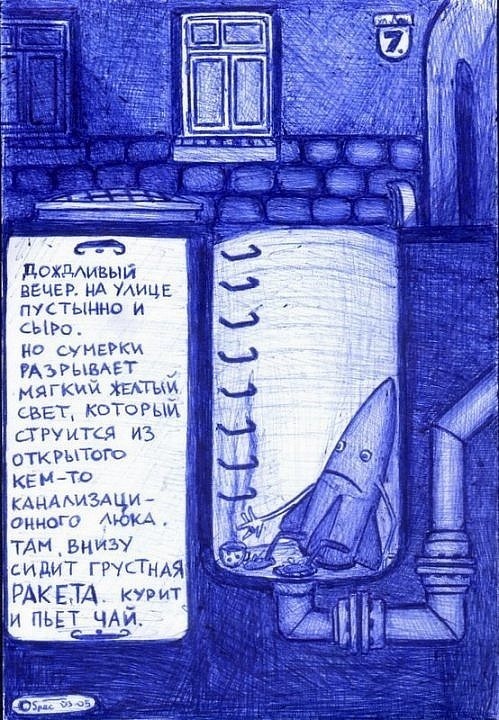 7.
ДОЖДЛИВЫЙ
ВЕЧЕР. НА УЛИЦЕ
ПУСТЫННО И
СЫРО.
НО СУМЕРКИ
РАЗРЫВАЕТ
МЯГКИЙ ЖЕЛТЫЙ
СВЕТ, КОТОРЫЙ
СТРУИТСЯ ИЗ
ОТКРЫТОГО
КЕМ-ТО
КАНАЛИЗАЦИ-
ОННОГО ЛЮКА.
ТАМ, ВНИЗУ
СИДИТ ГРУСТНАЯ
РАКЕТА. КУРИТ
И ПЬЕТ ЧАЙ.
Spec 03-05